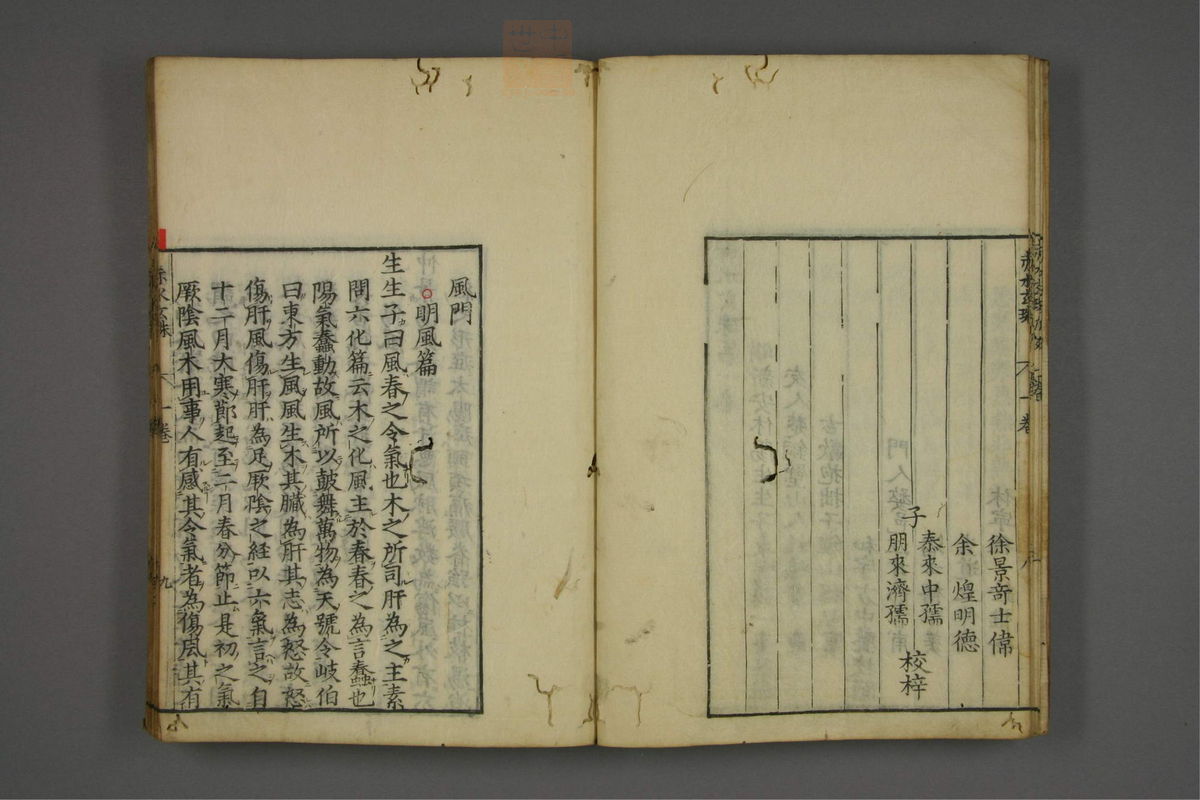 徐景奇士偉
余煌明德
子
泰來中孺
朋來濟孺
校梓
赤水玄珠
一卷
風門
明風篇
生生子曰風春之令氣也木之所司肝為之主素
問六化篇云木之化風主於春春之為言蠢也
陽氣蠢動故風所以皷舞萬物為天號令岐伯
曰東方生風風生木其臟為肝其志為怒故怒
傷肝風傷肝肝為足厥陰之經以六氣言之自
十二月大寒節起至二月春分節止是初之氣
厥陰風木用事人有感其令氣者為傷風其有
赤水玄珠
一卷
九